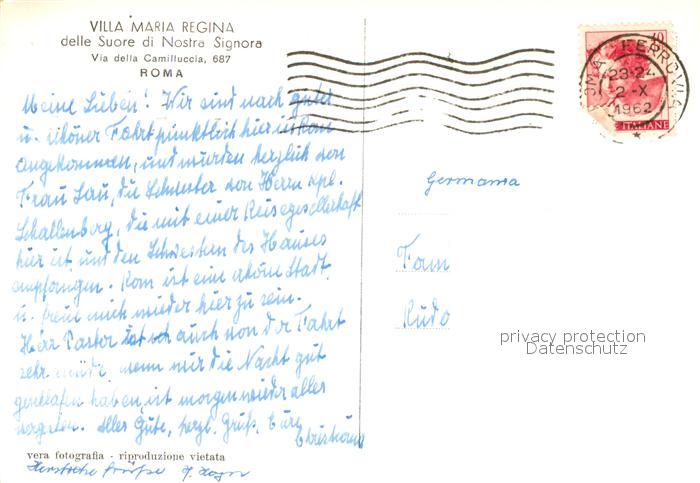 VILLA MARIA REGINA
delle Suore di Nostra Signora
Via della Camilluccia, 687
ROMA
Meine Lieben! Wir sind nach guter
u. schöner Fahrt pünktlich hier in Rom
angekommen, und wurden herzlich von
Frau, die Schwester von Herrn Kpl.
Schallenberg, die mit einer Reisegesellschaft
hier ist und den Schwestern des Hauses
empfangen. Rom ist eine schöne Stadt
u. freue mich wieder hier zu sein.
Herr Pastor ist auch von der Fahrt
sehr müde, wenn wir die Nacht gut
geschlafen haben, ist morgen wieder alles
vergessen. Alles Gute, herzl. Grüße, Eure
Christiane
vera fotografia - riproduzione vietata
Herzliche Grüße
10
ROMA FERROVIA
23-24
2-X
1962
E ITALIANE
Germania
Fam
Rudo
privacy protection
Datenschutz